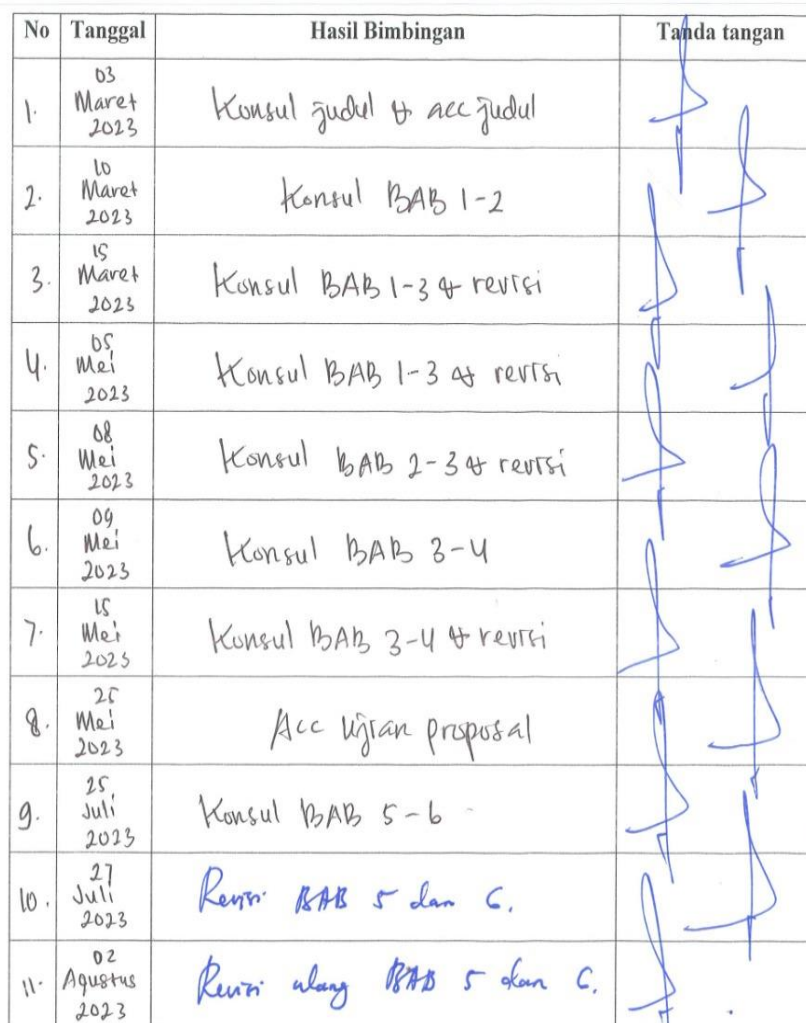 No Tanggal Hasil Bimbingan Tanda tangan
1. 03 Maret 2023 Konsul judul & acc judul
2. 10 Maret 2023 Konsul BAB 1-2
3. 15 Maret 2023 Konsul BAB 1-3 & revisi
4. 05 Mei 2023 Konsul BAB 1-3 & revisi
5. 08 Mei 2023 Konsul BAB 2-3 & revisi
6. 09 Mei 2023 Konsul BAB 3-4
7. 15 Mei 2023 Konsul BAB 3-4 & revisi
8. 25 Mei 2023 Acc Ujian proposal
9. 25 Juli 2023 Konsul BAB 5-6
10. 27 Juli 2023 Revisi BAB 5 dan 6.
11. 02 Agustus 2023 Revisi ulang BAB 5 dan 6.